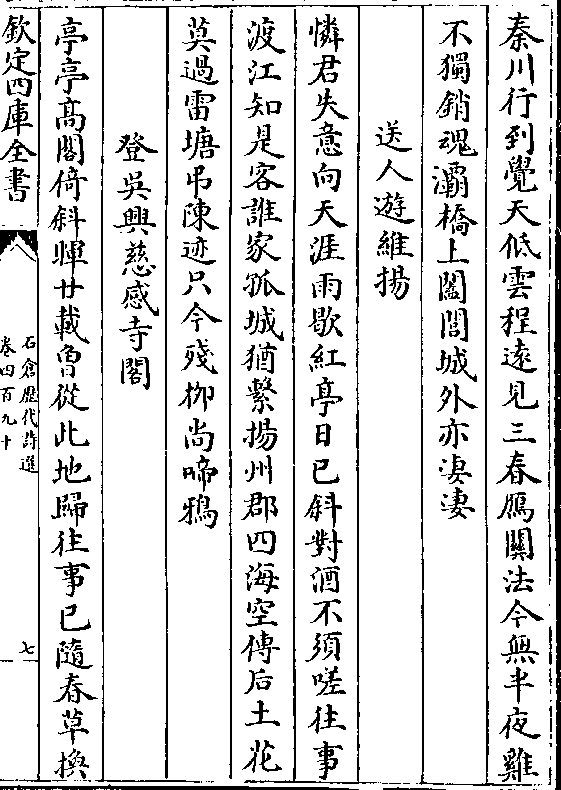 秦川行到覺天低雲程遠見三春鴈關法今無半夜雞
不獨銷魂灞橋上闔閭城外亦淒淒
送人遊維揚
憐君失意向天涯雨歇紅亭日已斜對酒不須嗟往事
渡江知是客誰家孤城猶繫揚州郡四海空傳后土花
莫過雷塘弔陳迹只今殘柳尚啼鴉
登吳興慈感寺閣
亭亭高閣倚斜暉廿載曾從此地歸往事已隨春草換
欽定四庫全書
石倉歷代詩選
卷四百九十
七